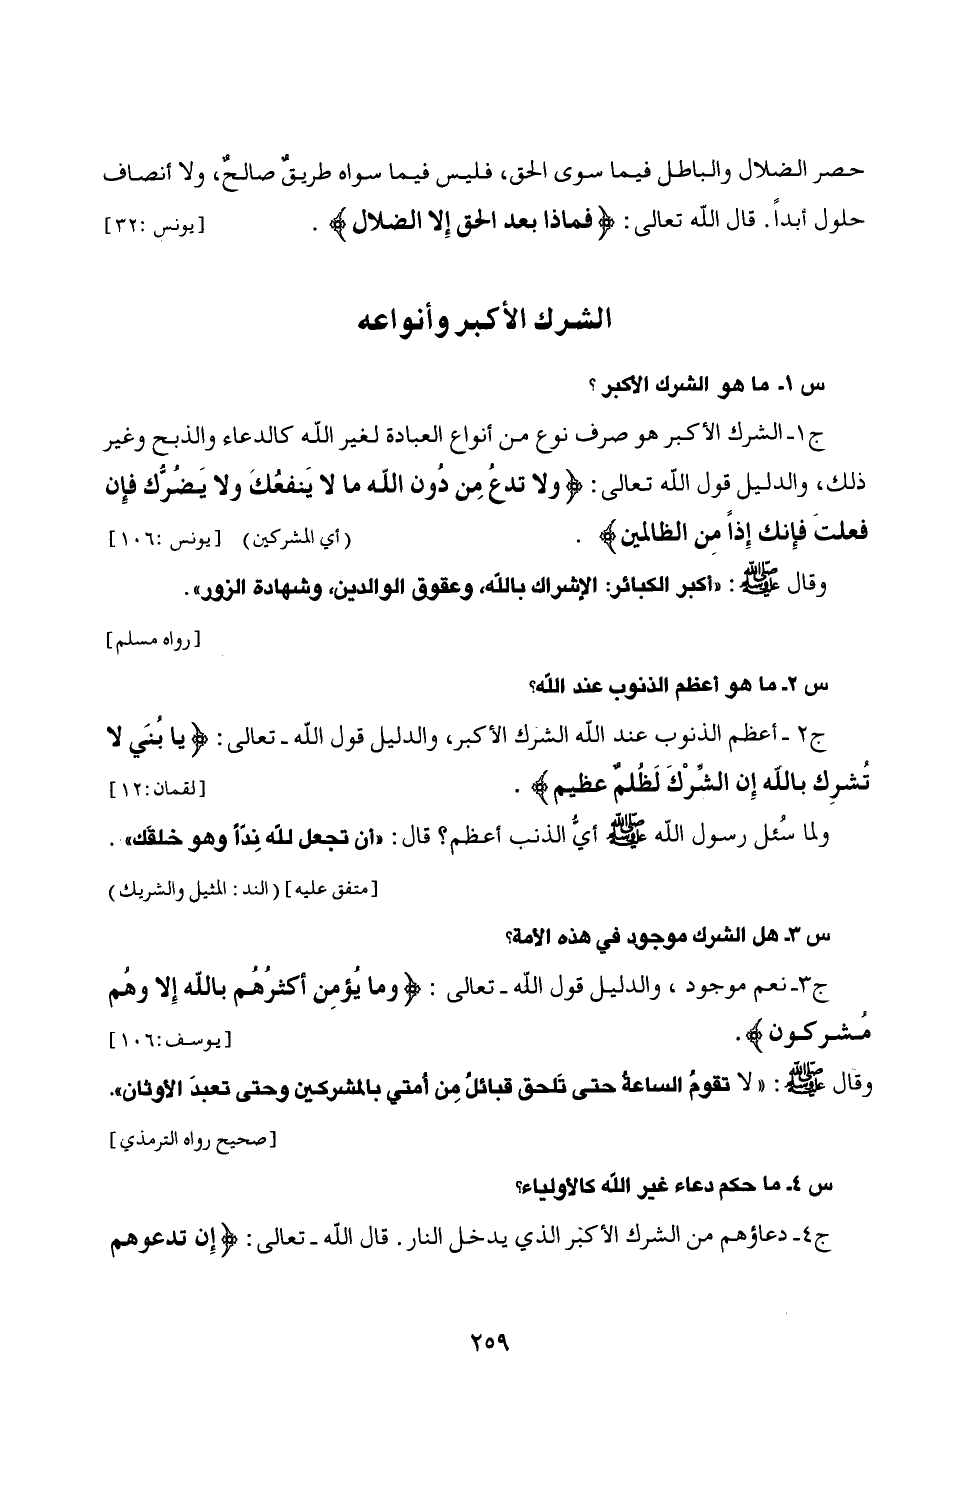 حصر الضلال والباطل فيما سوى الحق، فليس فيما سواه طريقٌ صالحٌ، ولا أنصاف
حلول أبداً. قال الله تعالى: ﴿فماذا بعد الحق إلا الضلال﴾ . [يونس :٣٢]
الشرك الأكبر وأنواعه
س ١ـ ما هو الشرك الأكبر ؟
ج١ـ الشرك الأكبر هو صرف نوع من أنواع العبادة لغير الله كالدعاء والذبح وغير
ذلك، والدليل قول الله تعالى: ﴿ولا تدعُ مِن دُون الله ما لا يَنفعُكَ ولا يَضُرُّك فإن
فعلتَ فإنك إذاً مِن الظالمين﴾ . (أي المشركين) [يونس :١٠٦]
وقال ﷺ : «أكبر الكبائر: الإشراك بالله، وعقوق الوالدين، وشهادة الزور».
[رواه مسلم]
س ٢ـ ما هو أعظم الذنوب عند الله؟
ج٢ ـ أعظم الذنوب عند الله الشرك الأكبر، والدليل قول الله ـ تعالى: ﴿يا بُنَي لا
تُشرِك بالله إن الشِّرْكَ لَظُلمٌ عظيم﴾ . [لقمان:١٢]
ولما سُئل رسول الله ﷺ أيُّ الذنب أعظم؟ قال: «أن تجعل لله نِدّاً وهو خلقَك» .
[متفق عليه] (الند: المثيل والشريك)
س ٣ـ هل الشرك موجود في هذه الأمة؟
ج٣ـ نعم موجود ، والدليل قول الله ـ تعالى : ﴿وما يُؤمِن أكثرُهُم بالله إلا وهُم
مُشركون﴾. [يوسف:١٠٦]
وقال ﷺ : «لا تقومُ الساعةُ حتى تَلحق قبائلُ مِن أمتي بالمشركين وحتى تعبدَ الأوثان».
[صحيح رواه الترمذي]
س ٤ـ ما حكم دعاء غير الله كالأولياء؟
ج٤ـ دعاؤهم من الشرك الأكبر الذي يدخل النار. قال الله ـ تعالى: ﴿إن تدعوهم
٢٥٩